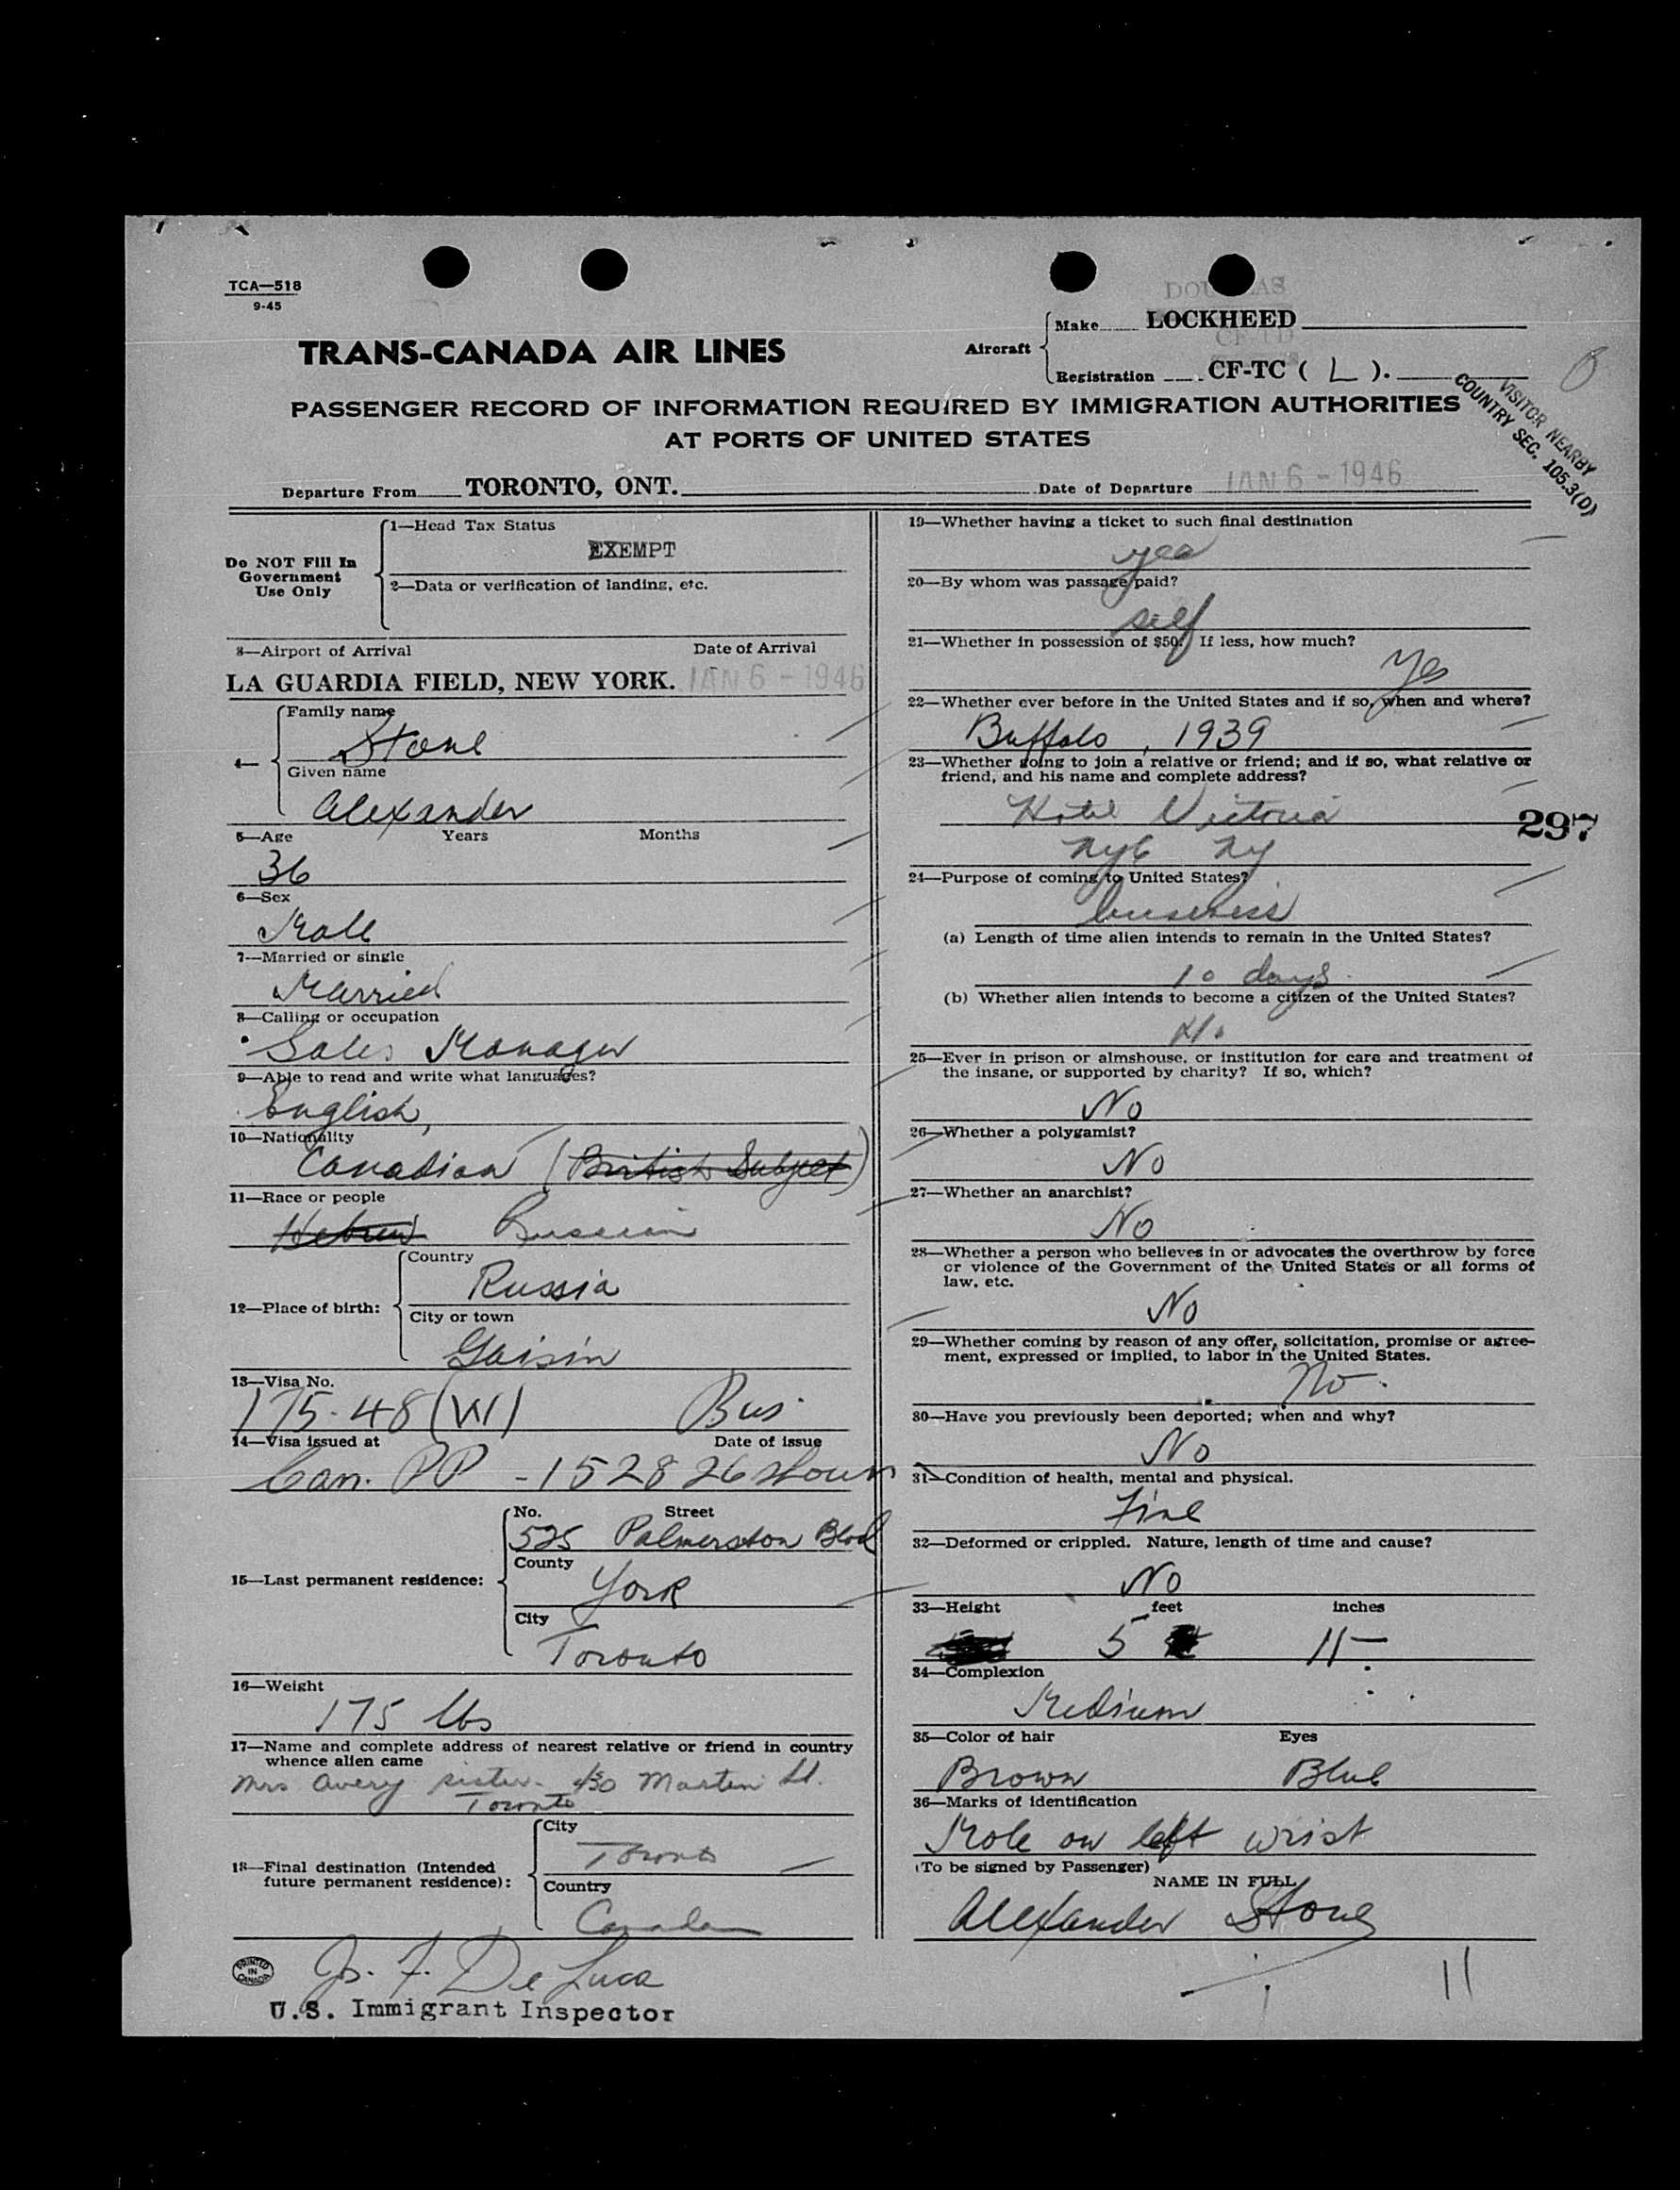 TCA—518
9-45
TRANS-CANADA AIR LINES
Aircraft
Make LOCKHEED
Registration CF-TC ( L ).
VISITOR NEARBY
COUNTRY SEC. 105.3(D)
PASSENGER RECORD OF INFORMATION REQUIRED BY IMMIGRATION AUTHORITIES
AT PORTS OF UNITED STATES
Departure From TORONTO, ONT. Date of Departure JAN 6 - 1946
Do NOT Fill In
Government
Use Only
1—Head Tax Status
EXEMPT
2—Data or verification of landing, etc.
3—Airport of Arrival Date of Arrival
LA GUARDIA FIELD, NEW YORK. JAN 6 - 1946
4—
Family name
Stone
Given name
Alexander
5—Age Years Months
36
6—Sex
Male
7—Married or single
Married
8—Calling or occupation
Sales Manager
9—Able to read and write what languages?
English,
10—Nationality
Canadian (British Subject)
11—Race or people
Hebrew Russian
12—Place of birth:
Country
Russia
City or town
Gaisin
13—Visa No.
175.48 (W) Bus.
14—Visa issued at Date of issue
Can. PP - 152826 shown
15—Last permanent residence:
No. Street
525 Palmerston Blvd
County
York
City
Toronto
16—Weight
175 lbs
17—Name and complete address of nearest relative or friend in country
whence alien came
Mrs Avery sister. Martin St.
Toronto
18—Final destination (Intended
future permanent residence):
City
Toronto
Country
Canada
PRINTED
IN
CANADA
De Luca
U.S. Immigrant Inspector
19—Whether having a ticket to such final destination
yes
20—By whom was passage paid?
self
21—Whether in possession of $50? If less, how much?
Yes
22—Whether ever before in the United States and if so, when and where?
Buffalo, 1939
23—Whether going to join a relative or friend; and if so, what relative or
friend, and his name and complete address?
Hotel Victoria
297
NYC NY
24—Purpose of coming to United States?
business
(a) Length of time alien intends to remain in the United States?
10 days
(b) Whether alien intends to become a citizen of the United States?
No
25—Ever in prison or almshouse, or institution for care and treatment of
the insane, or supported by charity? If so, which?
No
26—Whether a polygamist?
No
27—Whether an anarchist?
No
28—Whether a person who believes in or advocates the overthrow by force
or violence of the Government of the United States or all forms of
law, etc.
No
29—Whether coming by reason of any offer, solicitation, promise or agree-
ment, expressed or implied, to labor in the United States.
No.
30—Have you previously been deported; when and why?
No
31—Condition of health, mental and physical.
Fine
32—Deformed or crippled. Nature, length of time and cause?
No
33—Height feet inches
5 11
34—Complexion
Medium
35—Color of hair Eyes
Brown Blue
36—Marks of identification
Mole on left wrist
(To be signed by Passenger)
NAME IN FULL
Alexander Stone
11